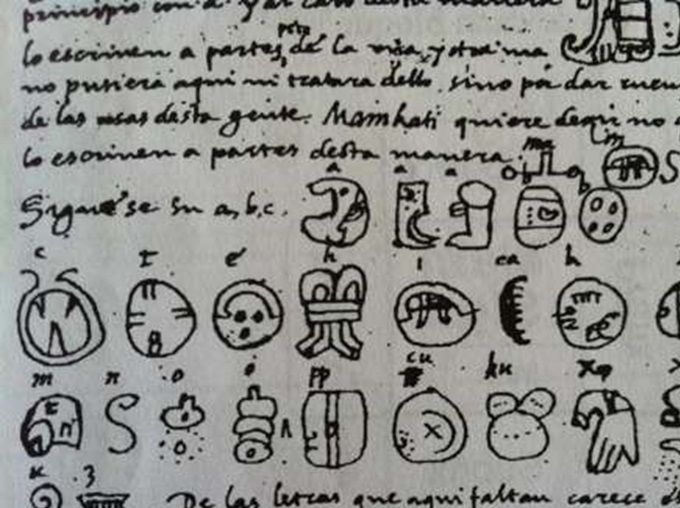 principio con a y al cabo desta manera
lo escriven a partes, pero de la una y otra ma
no pusiera aqui ni tratara dello sino por dar cuen
de las cosas desta gente. Mainkati quiere dezir no
lo escriven a partes desta manera. ma i n
Siguese su a, b, c. a a a b b
c T e h i ca k
m n o o pp cu ku x
u z De las letras que aqui faltan carece